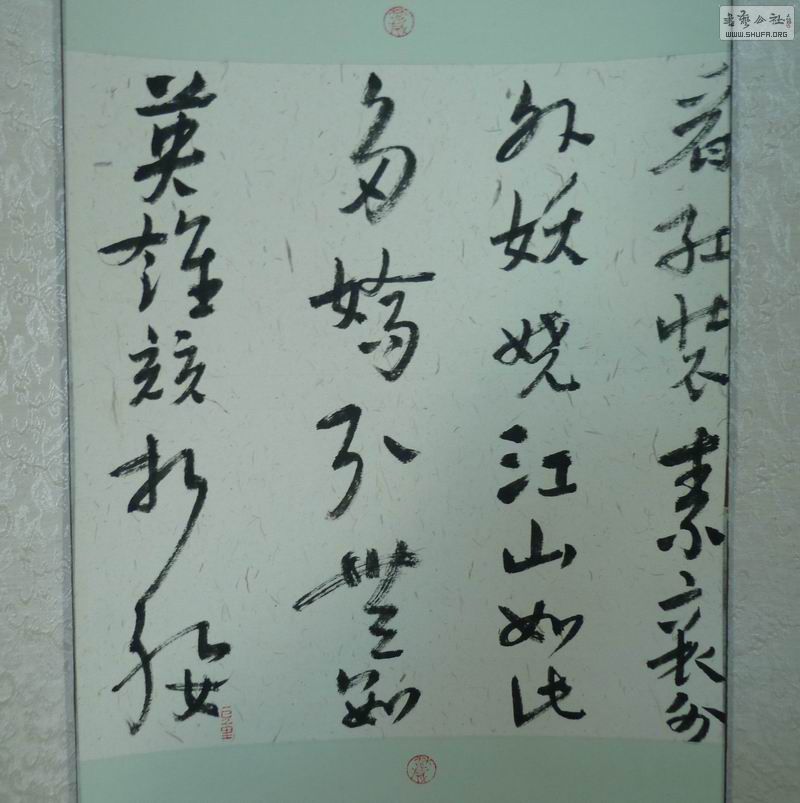 看红装素裹分
外妖娆江山如此
多嬌引無數
英雄競折腰
书艺公社
WWW.SHUFA.ORG